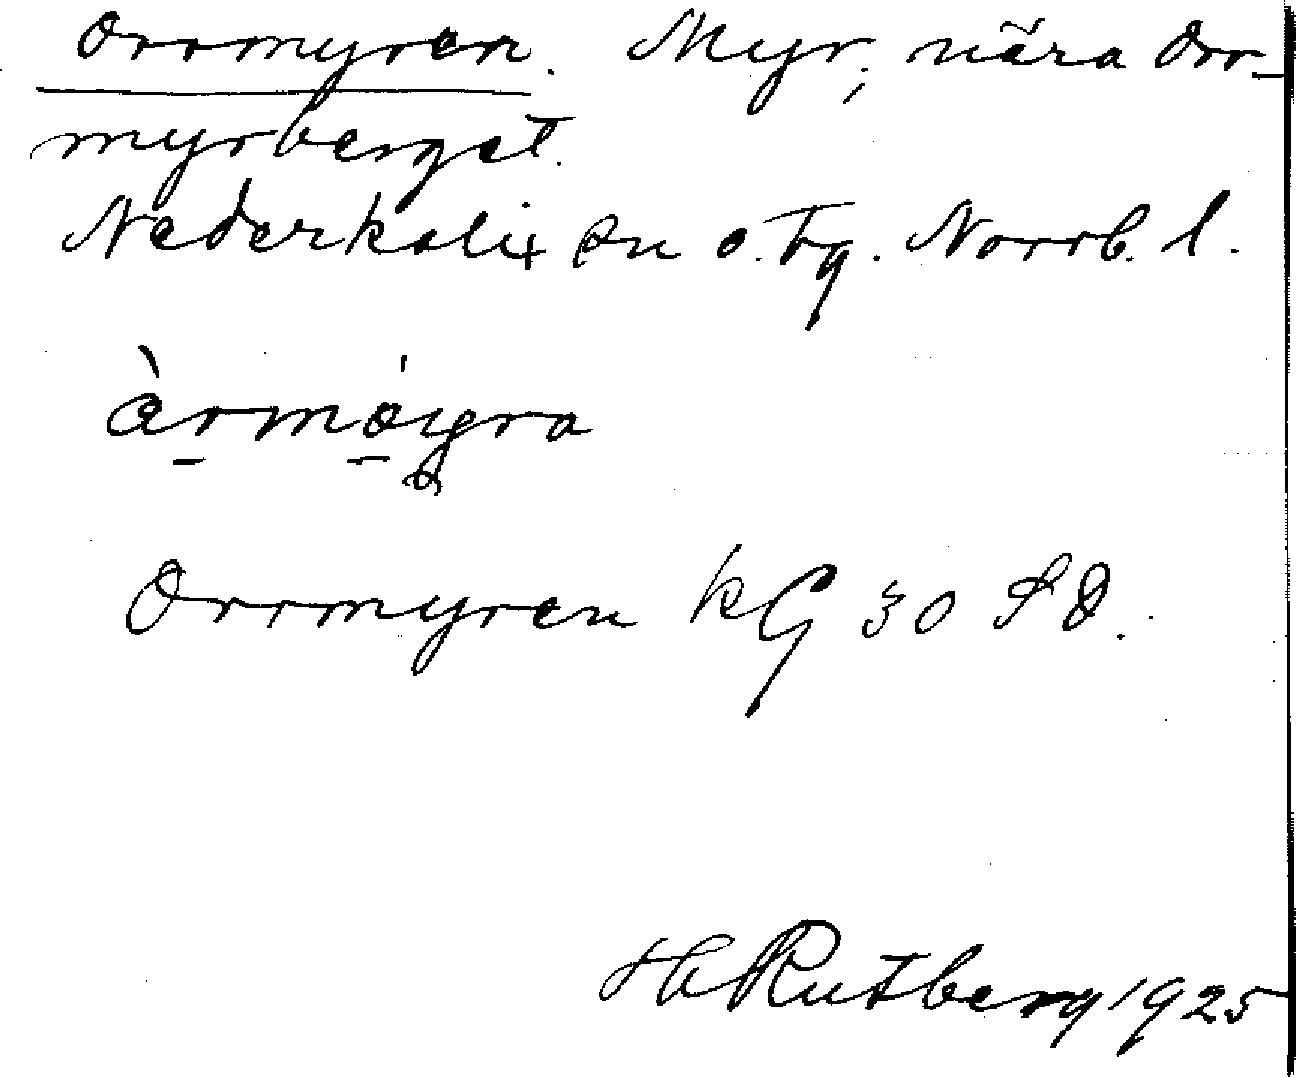 Orrmyren. Myr, nära Orr-
myrberget.
Nederkalix sn o. tg. Norrb. l.
Orrmyren kG 30 SO.
H Rutberg 1925